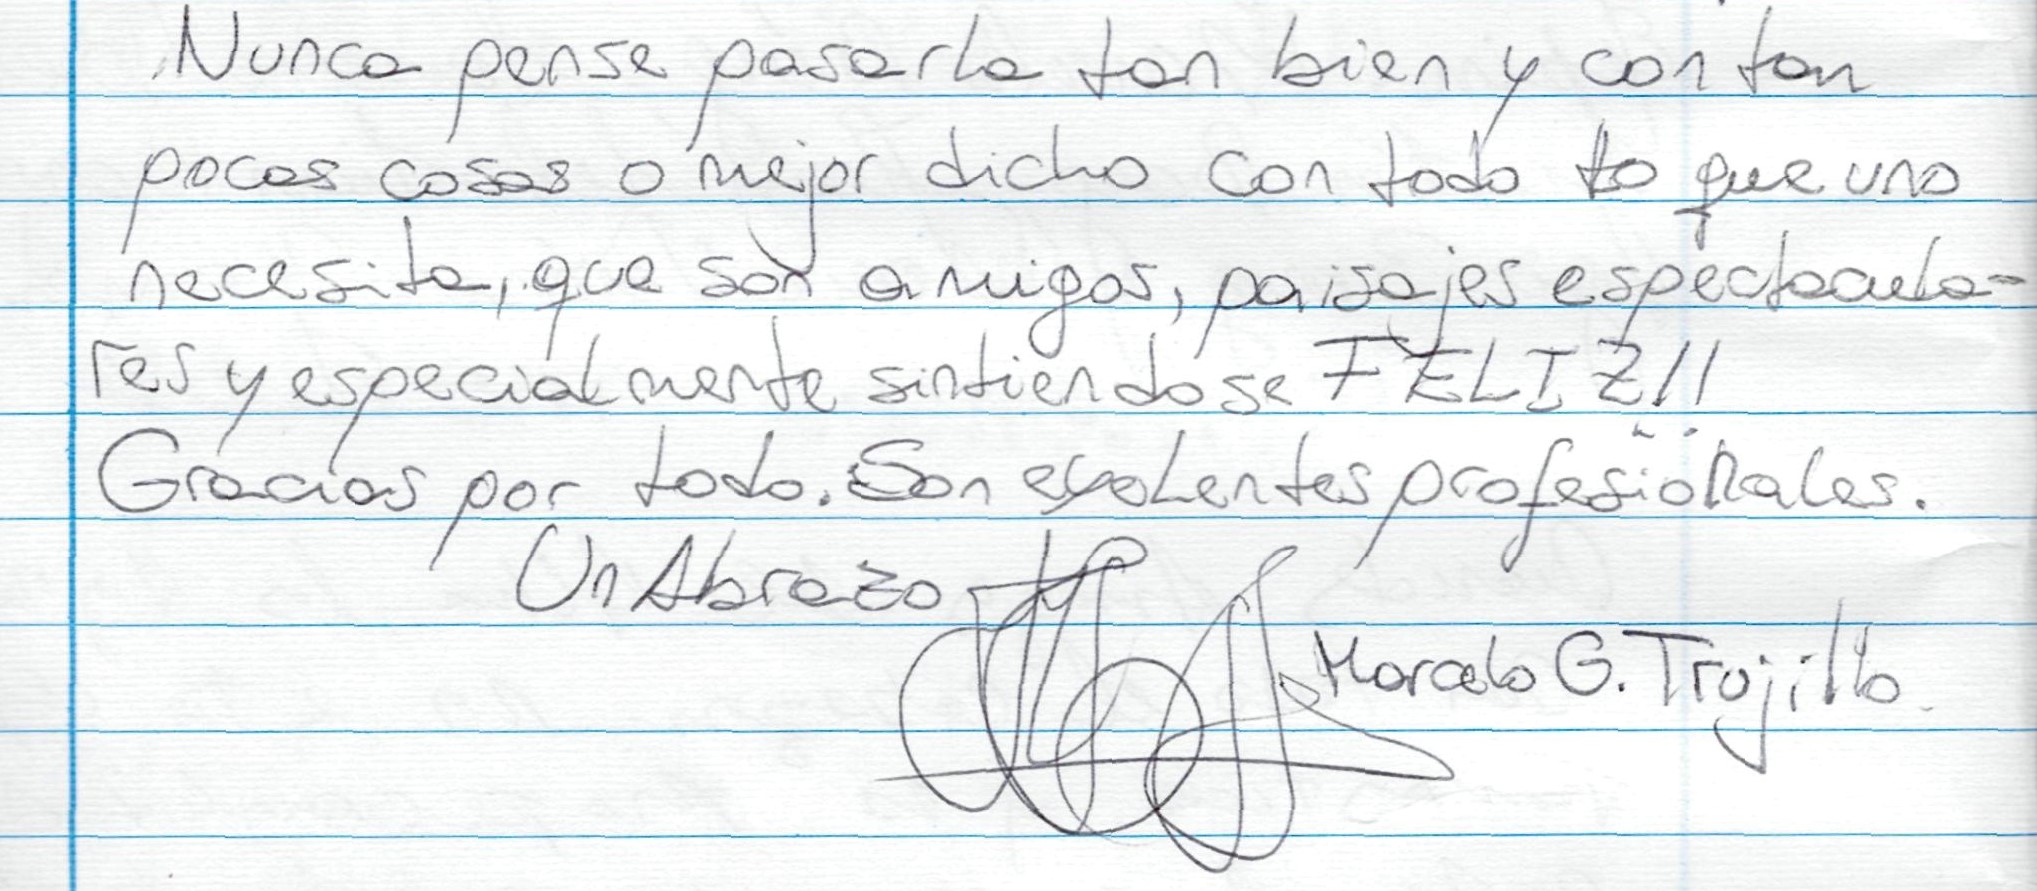 Nunca pense pasarla tan bien y con tan
pocas cosas o mejor dicho con todo lo que uno
necesita, que son amigos, paisajes espectacula-
res y especialmente sintiendose FELIZ!!
Gracias por todo. Son exelentes profesionales.
Un Abrazo
Marcelo G. Trujillo.